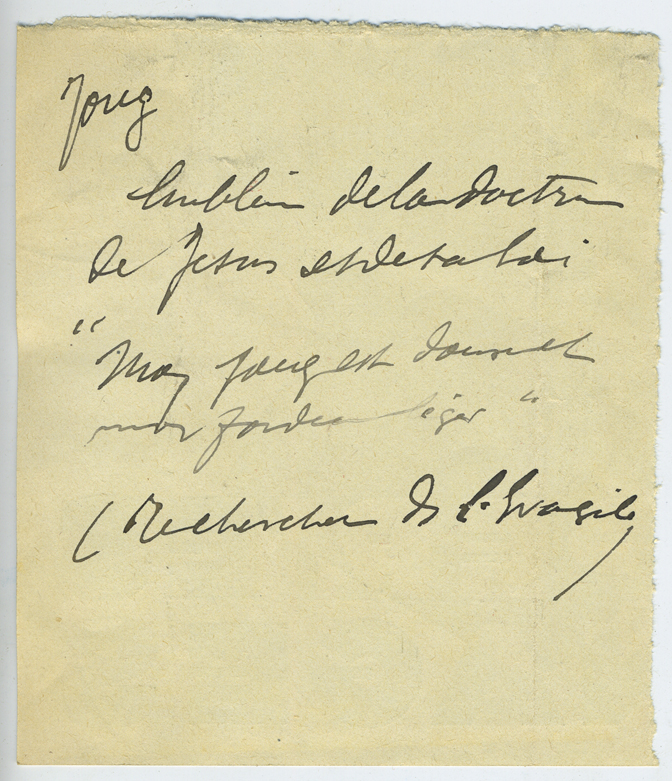 Joug
Emblème de la doctrine
de Jésus et de sa loi
"Mon joug est doux et
mon fardeau léger"
(Rechercher ds l'Evangile)